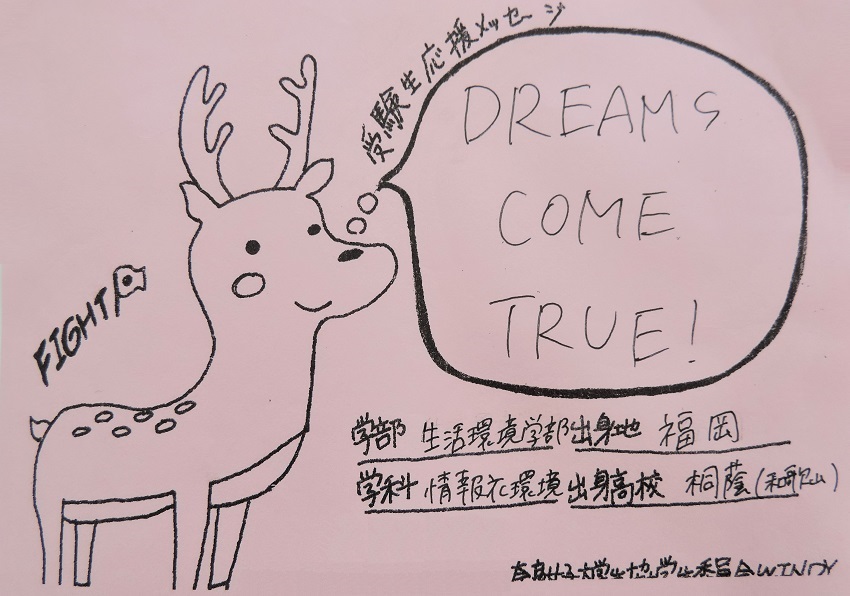 受験生応援メッセージ
DREAMS
COME
TRUE!
FIGHT
学部 生活環境学部 出身地 福岡
学科 情報衣環境 出身高校 桐蔭(和歌山)
奈良女子大学生協学生委員会WINDY